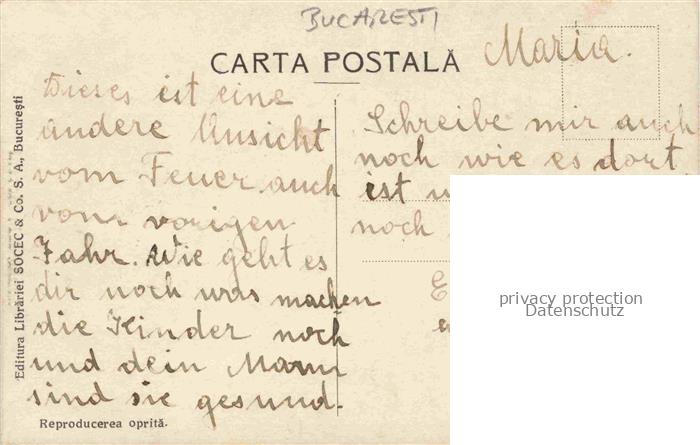 BUCARESTI
CARTA POSTALĂ
Maria.
Dieses ist eine
andere Ansicht
vom Feuer auch
vom vorigen
Jahr. Wie geht es
dir noch was machen
die Kinder noch
und dein Mann
sind sie gesund.
Schreibe mir auch
noch wie es dort
ist
noch
Editura Librăriei SOCEC & Co. S. A., București
Reproducerea oprită.
privacy protection
Datenschutz